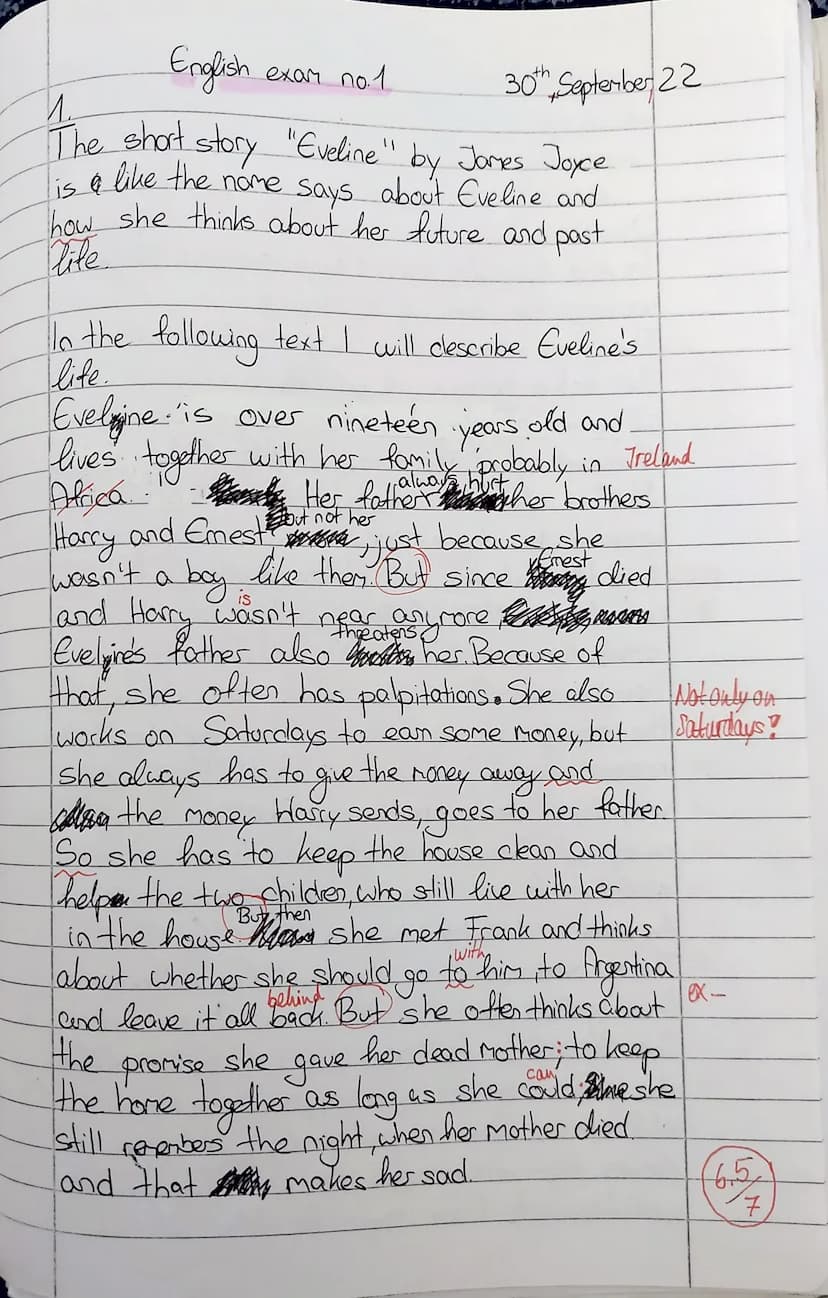 English exam no.1 30th, September, 22
1.
The short story "Eveline" by James Joyce
is like the name says about Eveline and
how she thinks about her future and past
life.
In the following text I will describe Eveline's
life.
Eveline is over nineteen years old and
lives together with her family, probably in Ireland
Africa. Her father always hurt her brothers
Harry and Ernest but not her, just because she
wasn't a boy like them. But since Ernest died
and Harry is wasn't near anymore
Eveline's father also threatens her. Because of
that, she often has palpitations. She also
Not only on
works on Saturdays to earn some money, but
Saturdays!
she always has to give the money away and
the money Harry sends, goes to her father.
So she has to keep the house clean and
help the two children, who still live with her
in the house. But then she met Frank and thinks
about whether she should go to with him, to Argentina
and leave it all back. behind But she often thinks about
ex-
the promise she gave her dead mother; to keep
the home together as long as she could, can she
still remembers the night, when her mother died
and that makes her sad.
6,5/7